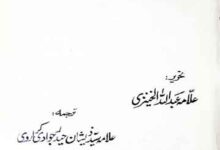 تحریر:
علامہ عبد اللہ الخنیزی
ترجمہ:
علامہ سید ذیشان حیدر جوادی کراروی